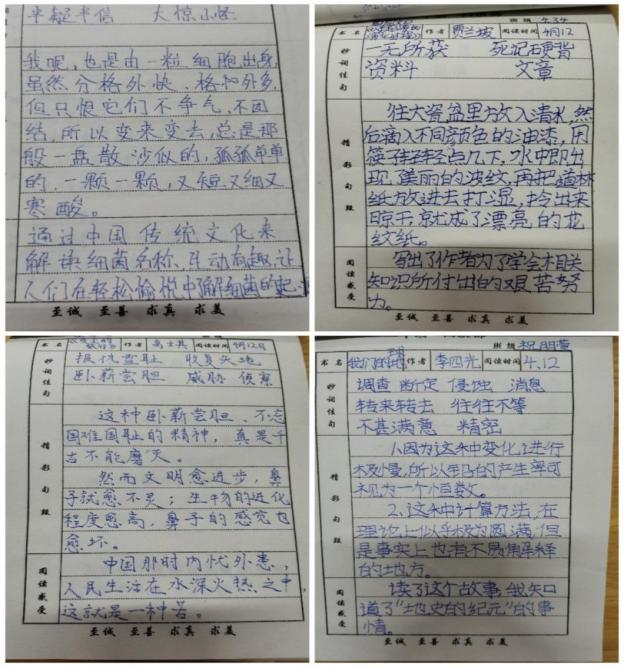 半疑半信 大惊小怪
我呢,也是由一粒细胞出身,
虽然分格外快、格外多,
但只恨它们不争气,不团
结,所以变来变去,总是那
般一盘散沙似的,孤孤单单
的,一颗一颗,又短又细又
寒酸。
通过中国传统文化来
解读细菌名称,生动有趣,让
人们在轻松愉悦中了解细菌的
至诚 至善 求真 求美
班级 4.34
书名 作者 贾兰坡 阅读时间 4月12
妙词佳句
一无所获 死记硬背
资料 文章
精彩句段
往大瓷盆里放入清水,然
后滴入不同颜色的油漆,用
筷子轻轻点几下,水中即出
现美丽的波纹,再把道林
纸放进去打湿,拎出来
晾干,就成了漂亮的花
纹纸。
阅读感受
写出了作者为了学会术相关
知识所付出的艰苦努
力。
至诚 至善 求真 求美
书名 作者 高士其 阅读时间 4月12日
妙词佳句
报仇雪耻 收复失地
卧薪尝胆 威胁 侦察
精彩句段
这种卧薪尝胆、不忘
国难国耻的精神,真是千
古不能磨灭。
然而文明愈进步,鼻
子就愈不灵;生物的进化
程度愈高,鼻子的感觉也
愈坏。
阅读感受
中国那时内忧外患,
人民生活在水深火热之中,
这就是一种苦。
至诚 至善 求真 求美
班级
书名 作者 李四光 阅读时间 4.12
妙词佳句
调查 断定 侵蚀 消息
转来转去 往往不等
不甚满意 精密
精彩句段
1、因为这种变化,进行
极慢,所以铅的产生率可
视为一个恒数。
2、这种计算方法,在
理论上似乎极为圆满,但
是事实上也有不易解释
的地方。
阅读感受
读了这个故事,我知
道了“地史的纪元”的事
情。
至诚 至善 求真 求美